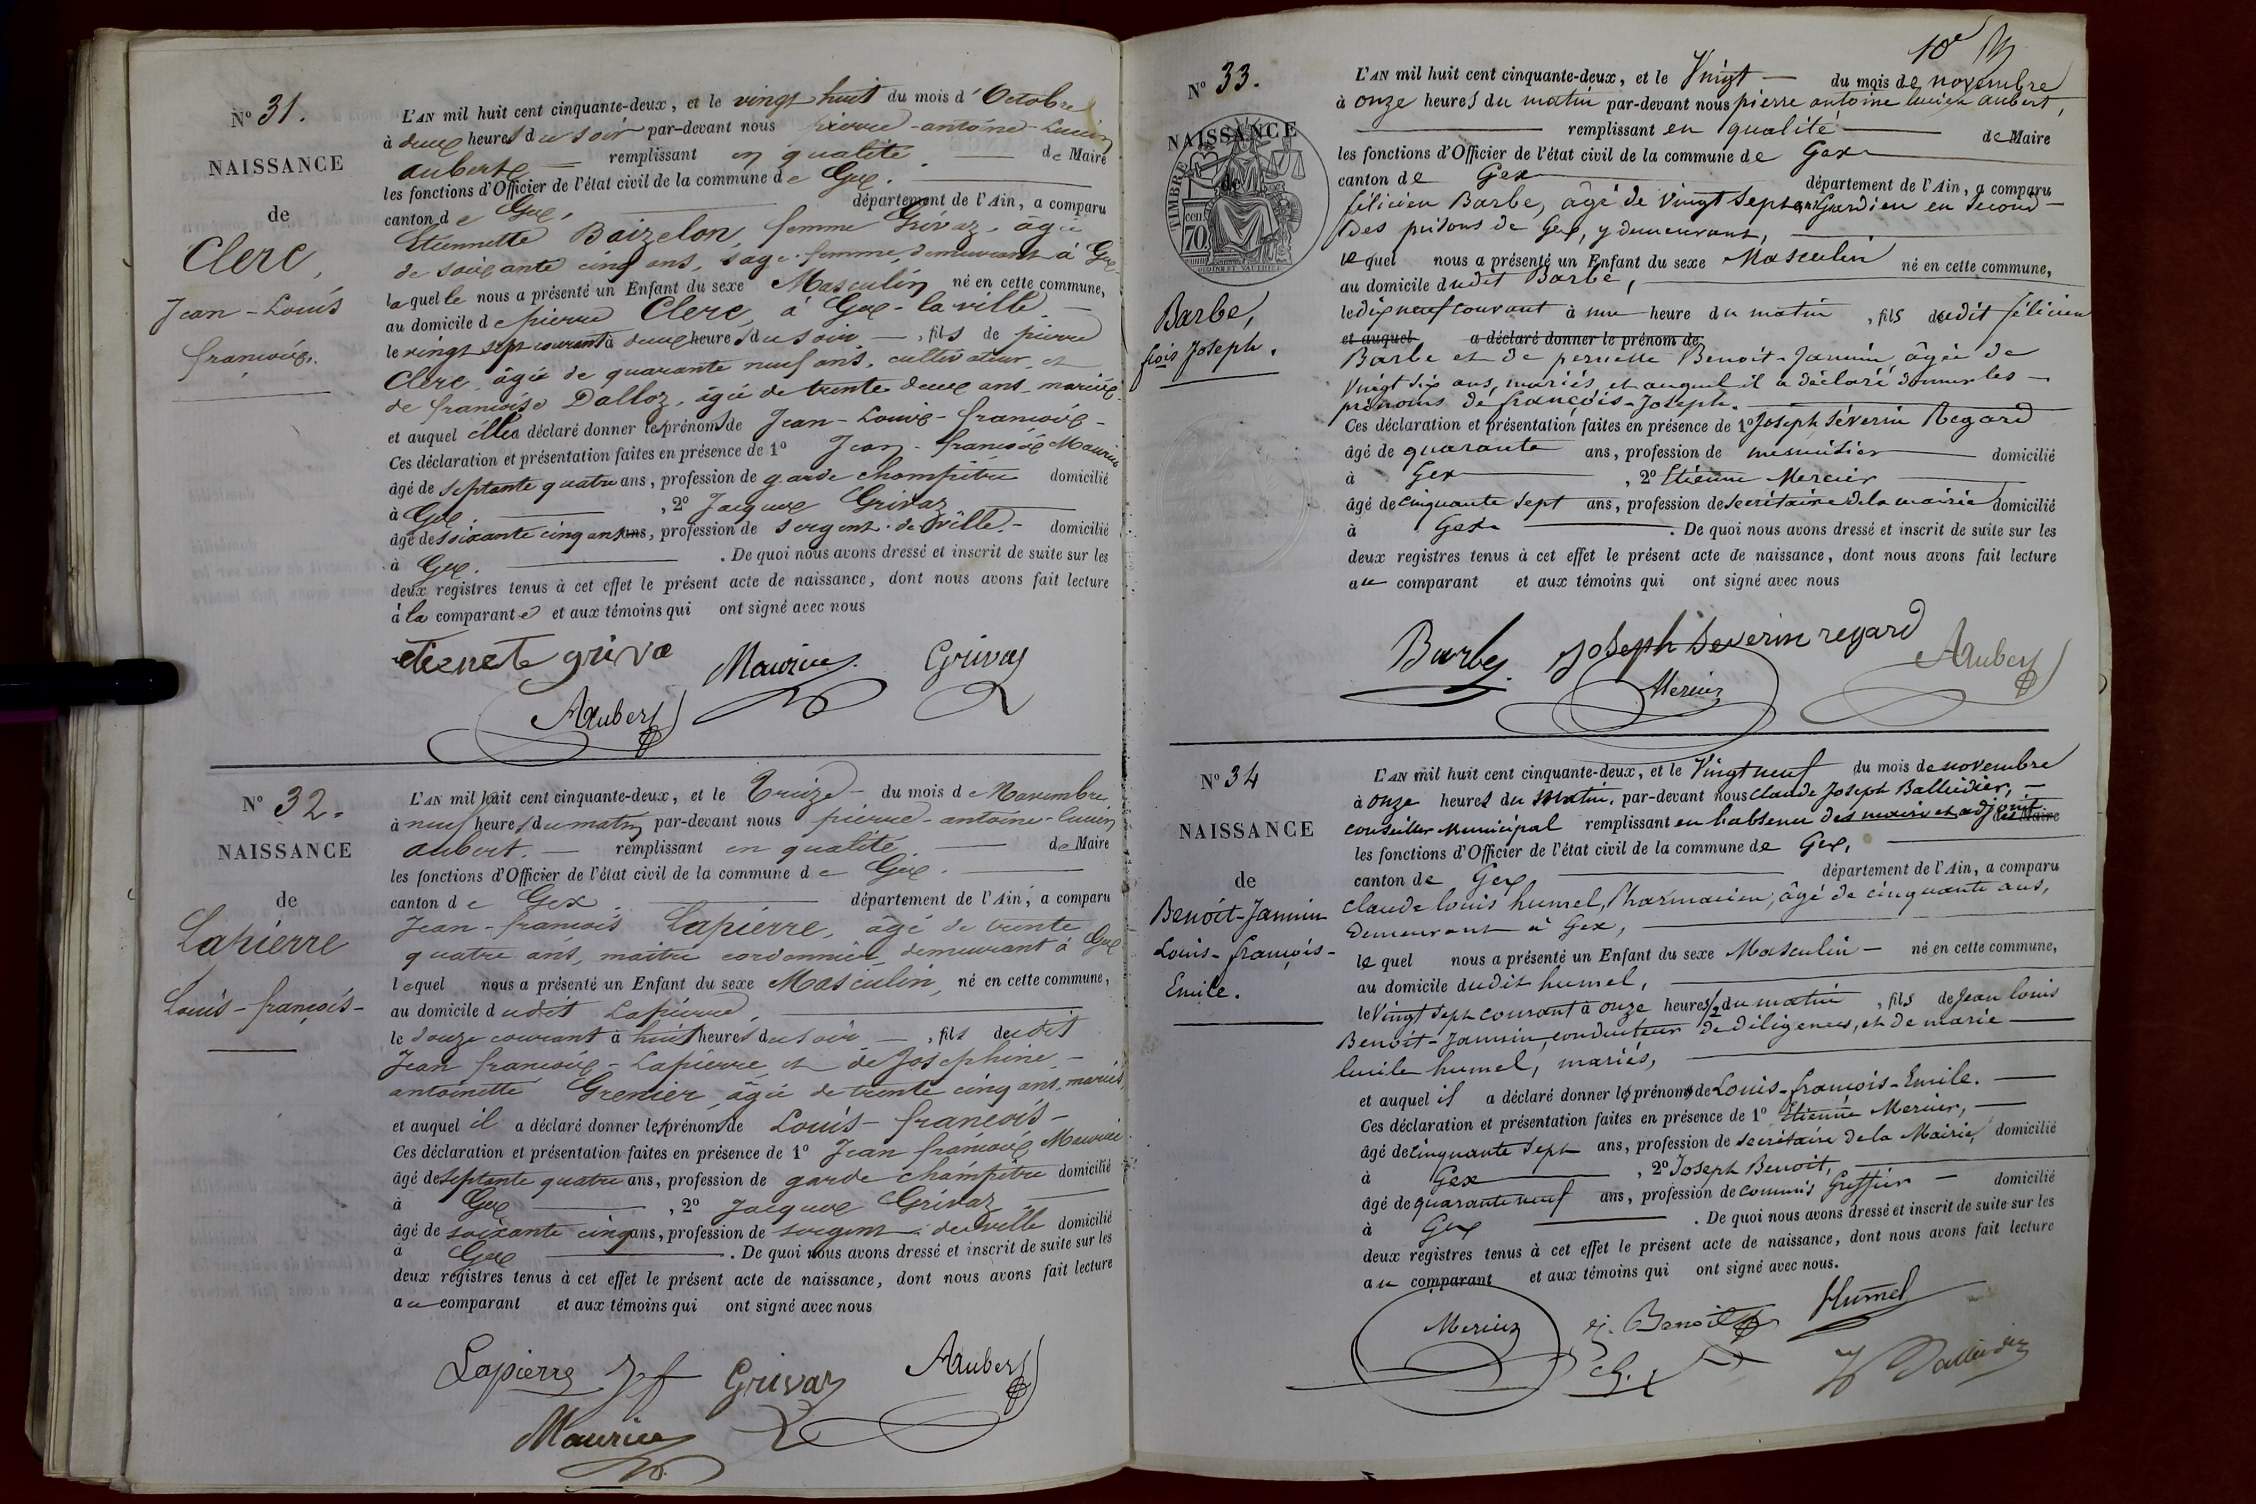 N° 31.
NAISSANCE
de
Clerc,
Jean-Louis
françois.
L'AN mil huit cent cinquante-deux, et le vingt huit du mois d'Octobre
à deux heures du soir par-devant nous pierre-antoine-Lucien
aubert remplissant en qualité de Maire
les fonctions d'Officier de l'état civil de la commune de Gex.
canton de Gex, département de l'Ain, a comparu
Etiennette Baizelon, femme Grivaz, âgée
de soixante cinq ans, sage-femme, demeurant à Gex
laquelle nous a présenté un Enfant du sexe Masculin né en cette commune,
au domicile de pierre Clerc, à Gex-la-ville
le vingt sept courant à deux heures du soir, fils de pierre
Clerc, âgé de quarante neuf ans, cultivateur, et
de françoise Dalloz, âgée de trente deux ans, mariés
et auquel elle a déclaré donner les prénoms de Jean-Louis-françois-
Ces déclaration et présentation faites en présence de 1° Jean-françois Maurice
âgé de septante quatre ans, profession de garde champêtre domicilié
à Gex, 2° Jacques Grivaz
âgé de soixante cinq ans ans, profession de sergent de ville domicilié
à Gex. De quoi nous avons dressé et inscrit de suite sur les
deux registres tenus à cet effet le présent acte de naissance, dont nous avons fait lecture
à la comparante et aux témoins qui ont signé avec nous
etienete griva Maurice Grivaz
Aubert
N° 32.
NAISSANCE
de
Lapierre
Louis-françois-
L'AN mil huit cent cinquante-deux, et le Treize du mois de Novembre
à neuf heures du matin par-devant nous pierre-antoine-lucien
aubert. remplissant en qualité de Maire
les fonctions d'Officier de l'état civil de la commune de Gex.
canton de Gex département de l'Ain, a comparu
Jean-francois Lapierre, âgé de trente
quatre ans, maître cordonnier demeurant à Gex
lequel nous a présenté un Enfant du sexe Masculin, né en cette commune,
au domicile dudit Lapierre,
le douze courant à huit heures du soir, fils dudit
Jean françois-Lapierre et de Josephine-
antoinette Grenier, âgée de trente cinq ans, mariés,
et auquel il a déclaré donner les prénoms de Louis-françois-
Ces déclaration et présentation faites en présence de 1° Jean françois Maurice
âgé de septante quatre ans, profession de garde champêtre domicilié
à Gex, 2° Jacques Grivaz
âgé de soixante cinq ans, profession de sergent de ville domicilié
à Gex. De quoi nous avons dressé et inscrit de suite sur les
deux registres tenus à cet effet le présent acte de naissance, dont nous avons fait lecture
au comparant et aux témoins qui ont signé avec nous
Lapierre Jf Grivaz Aubert
Maurice
10e
N° 33.
NAISSANCE
de
TIMBRE
cen 70.
Barbe,
fçois Joseph.
L'AN mil huit cent cinquante-deux, et le Vingt du mois de novembre
à onze heures du matin par-devant nous pierre antoine lucien aubert,
remplissant en qualité de Maire
les fonctions d'Officier de l'état civil de la commune de Gex
canton de Gex département de l'Ain, a comparu
félicien Barbe, âgé de vingt sept ans, Gardien en second
des prisons de Gex, y demeurant,
lequel nous a présenté un Enfant du sexe Masculin né en cette commune,
au domicile dudit Barbe,
le dix neuf courant à une heure du matin, fils dudit félicien
et auquel a déclaré donner le prénom de
Barbe et de pernette Benoit-Jannin, âgée de
vingt six ans, mariés, et auquel il a déclaré donner les
prénoms de françois-Joseph.
Ces déclaration et présentation faites en présence de 1° Joseph Séverin Regard
âgé de quarante ans, profession de menuisier domicilié
à Gex, 2° Etienne Mercier
âgé de cinquante sept ans, profession de secrétaire de la mairie domicilié
à Gex. De quoi nous avons dressé et inscrit de suite sur les
deux registres tenus à cet effet le présent acte de naissance, dont nous avons fait lecture
au comparant et aux témoins qui ont signé avec nous
Barbe. Joseph Severin regard Aubert
Mercier
N° 34
NAISSANCE
de
Benoit-Jannin
Louis-françois-
Emile.
L'AN mil huit cent cinquante-deux, et le Vingt neuf du mois de novembre
à onze heures du matin, par-devant nous Claude Joseph Balleidier,
conseiller Municipal remplissant en l'absence des maire et adjoint de Maire
les fonctions d'Officier de l'état civil de la commune de Gex,
canton de Gex département de l'Ain, a comparu
Claude Louis humel, Pharmacien, âgé de cinquante ans,
demeurant à Gex,
lequel nous a présenté un Enfant du sexe Masculin né en cette commune,
au domicile dudit humel,
le Vingt sept courant à onze heures 1/2 du matin, fils de Jean louis
Benoit-Jannin, conducteur de diligences, et de marie
lucile humel, mariés,
et auquel il a déclaré donner les prénoms de Louis-françois-Emile.
Ces déclaration et présentation faites en présence de 1° Etienne Mercier,
âgé de cinquante sept ans, profession de secrétaire de la Mairie, domicilié
à Gex, 2° Joseph Benoit,
âgé de quarante neuf ans, profession de commis Greffier domicilié
à Gex. De quoi nous avons dressé et inscrit de suite sur les
deux registres tenus à cet effet le présent acte de naissance, dont nous avons fait lecture
au comparant et aux témoins qui ont signé avec nous.
Mercier j. Benoit Humel
Balleidier